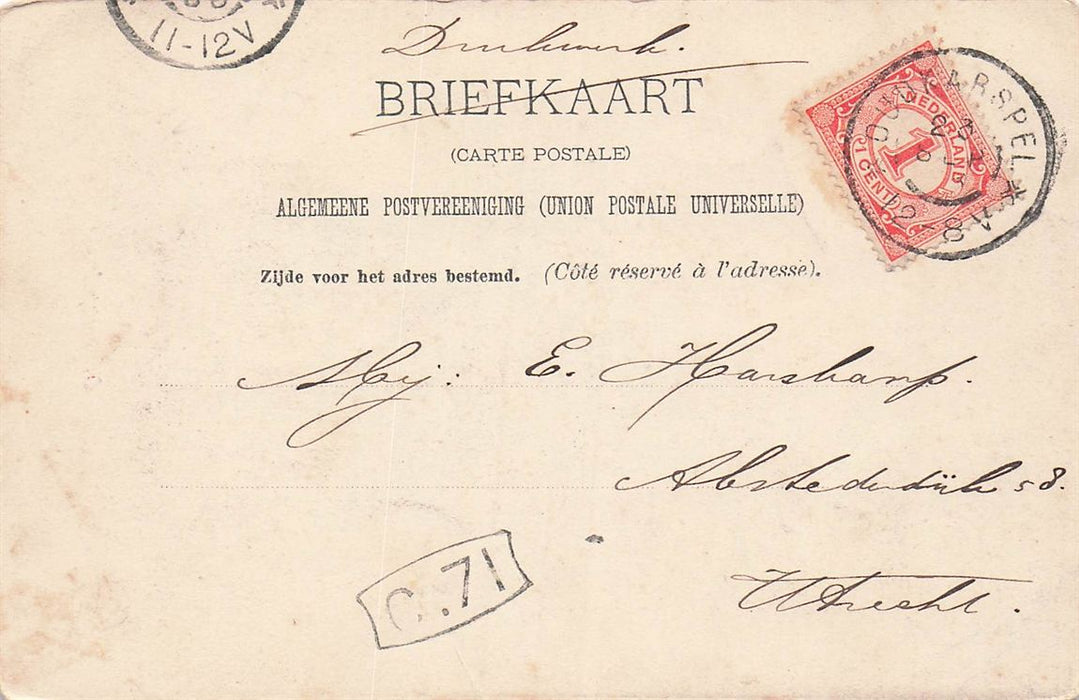 11-12V
Drukwerk.
BRIEFKAART
(CARTE POSTALE)
ALGEMEENE POSTVEREENIGING (UNION POSTALE UNIVERSELLE)
Zijde voor het adres bestemd. (Côté réservé à l'adresse).
NEDERLAND
1
1 CENT
OUDKARSPEL
12-8V
Mej: E. Harskamp.
Abstederdijk 58.
Utrecht.
C.71